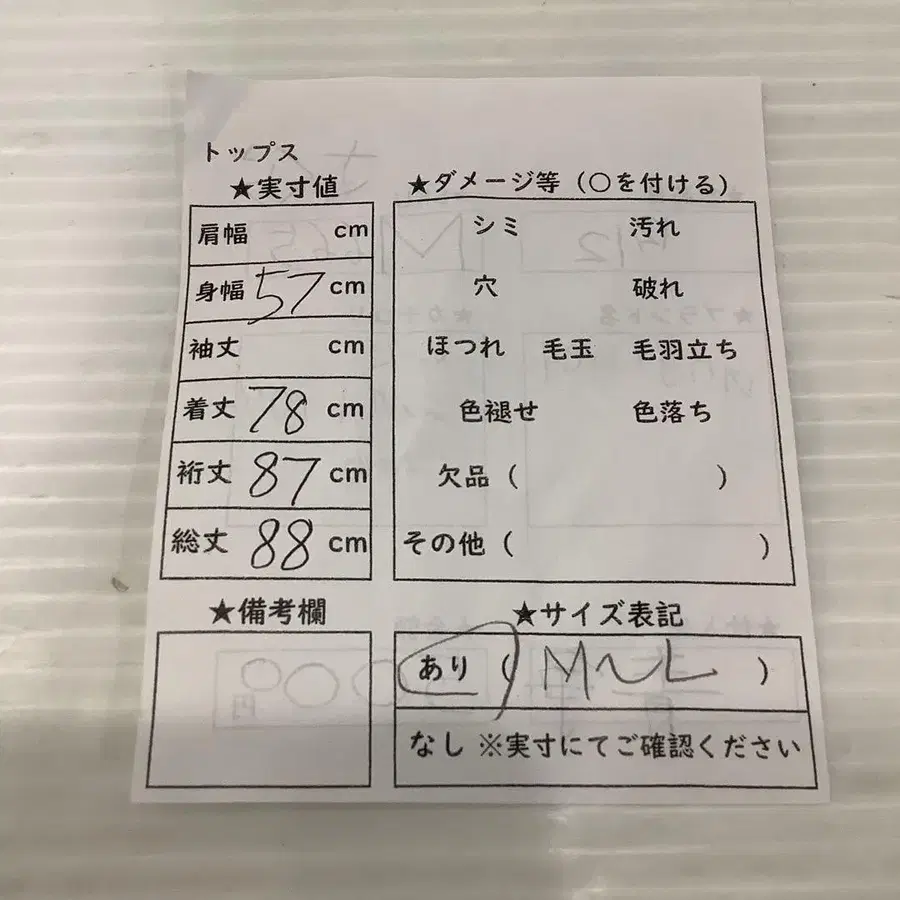 トップス
★実寸値
肩幅 cm
身幅 57 cm
袖丈 cm
着丈 78 cm
裄丈 87 cm
総丈 88 cm
★備考欄
★ダメージ等（○を付ける）
シミ 汚れ
穴 破れ
ほつれ 毛玉 毛羽立ち
色褪せ 色落ち
欠品（ ）
その他（ ）
★サイズ表記
あり（ M〜L ）
なし ※実寸にてご確認ください